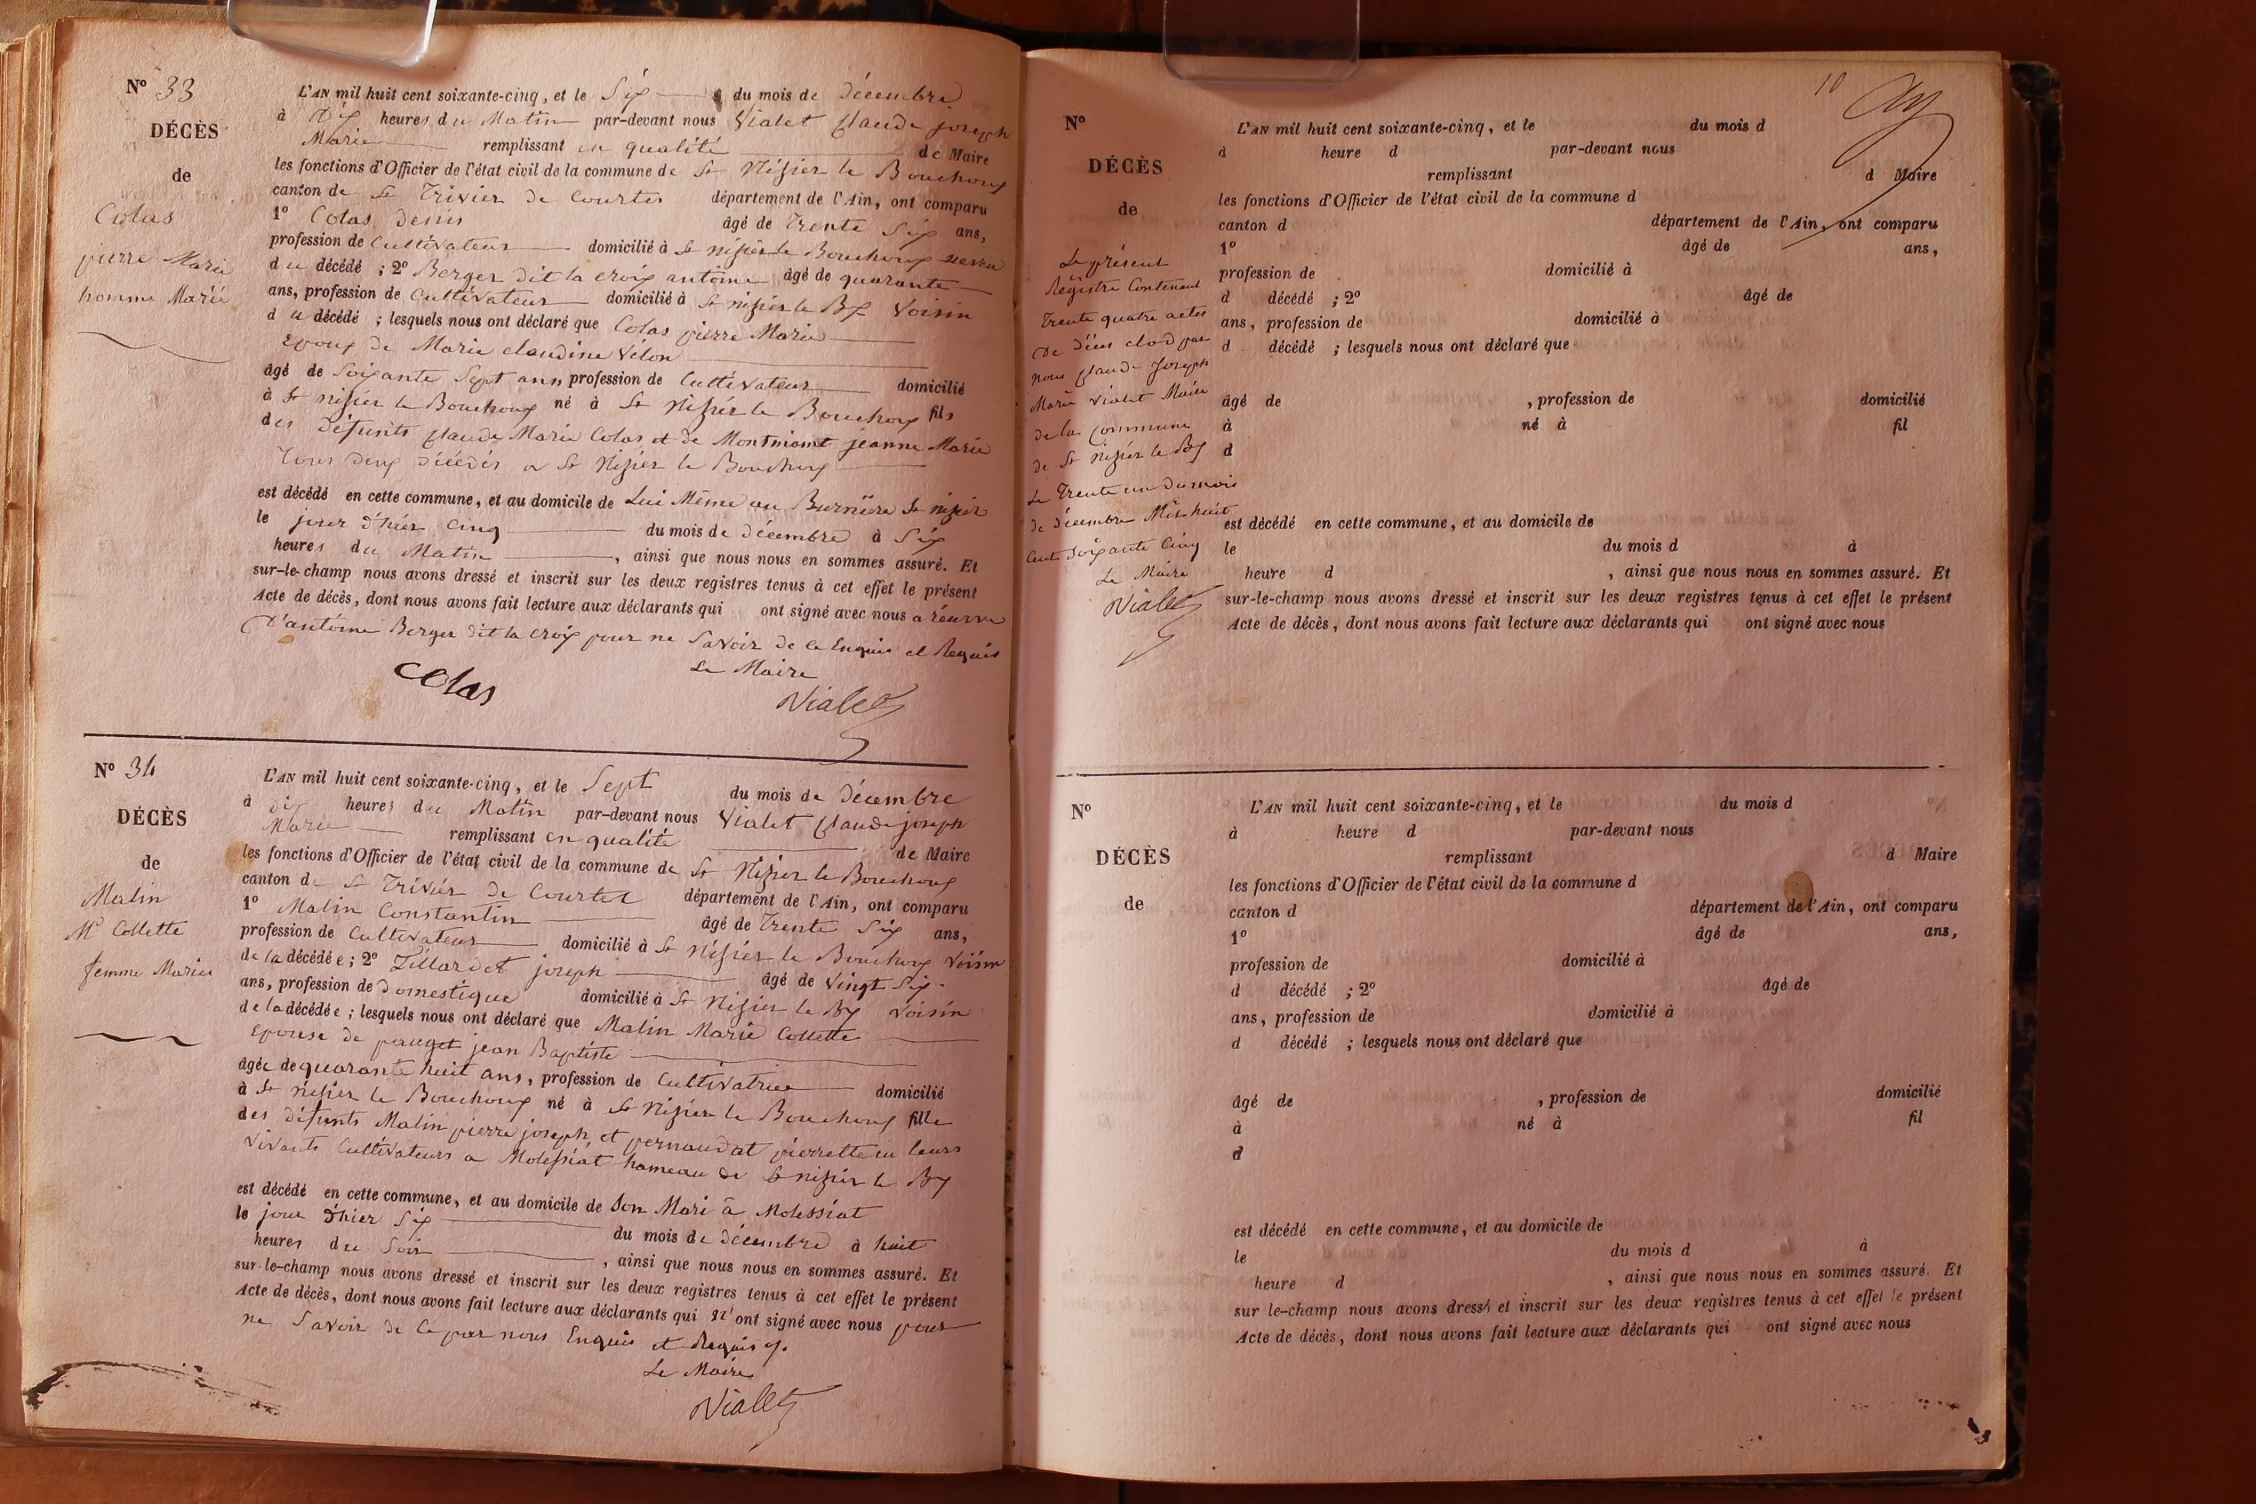 Nº 33
DÉCÈS
de
Colas
pierre Marie
homme Marié
L'AN mil huit cent soixante-cinq, et le Six du mois de décembre
à Dix heures du Matin par-devant nous Vialet Claude joseph
Marie remplissant en qualité de Maire
les fonctions d'Officier de l'état civil de la commune de St Nizier le Bouchoux
canton de St Trivier de Courtes département de l'Ain, ont comparu
1º Colas Denis âgé de Trente Six ans,
profession de Cultivateur domicilié à St nizier le Bouchoux neveu
du décédé ; 2º Berger dit la croix antoine âgé de quarante
ans, profession de Cultivateur domicilié à St nizier le Bx Voisin
du décédé ; lesquels nous ont déclaré que Colas pierre Marie
Epoux de Marie claudine Vélon
âgé de Soixante Sept ans profession de Cultivateur domicilié
à St nizier le Bouchoux né à St Nizier le Bouchoux fils
des défunts Claude Marie Colas et de Montmiont jeanne Marie
Tous deux décédés a St Nizier le Bouchoux
est décédé en cette commune, et au domicile de Lui Même au St nizier
le jour d'hier cinq du mois de décembre à Six
heures du Matin , ainsi que nous nous en sommes assuré. Et
sur-le-champ nous avons dressé et inscrit sur les deux registres tenus à cet effet le présent
Acte de décès, dont nous avons fait lecture aux déclarants qui ont signé avec nous a réserve
D'antoine Berger dit la croix pour ne Savoir de ce Enquis et Requis
Le Maire
Colas Vialet
Nº 34
DÉCÈS
de
Malin
Mie Collette
femme Mariée
L'AN mil huit cent soixante-cinq, et le Sept du mois de décembre
à dix heures du Matin par-devant nous Vialet Claude joseph
Marie remplissant en qualité de Maire
les fonctions d'Officier de l'état civil de la commune de St Nizier le Bouchoux
canton de St Trivier de Courtes département de l'Ain, ont comparu
1º Malin Constantin âgé de Trente Six ans,
profession de Cultivateur domicilié à St Nizier le Bouchoux Voisin
de la décédée ; 2º Tillardet joseph âgé de Vingt Six
ans, profession de domestique domicilié à St Nizier le Bx Voisin
de la décédée ; lesquels nous ont déclaré que Malin Marie Collette
Epouse de pauget jean Baptiste
âgée de quarante huit ans, profession de Cultivatrice domicilié
à St nizier le Bouchoux né à St Nizier le Bouchoux fille
des défunts Malin pierre joseph et pernaudat pierrette en leurs
Vivants Cultivateurs a Molessiat hameau de St nizier le Bx
est décédé en cette commune, et au domicile de Son Mari à Molessiat
le jour d'hier Six du mois de décembre à huit
heures du Soir , ainsi que nous nous en sommes assuré. Et
sur-le-champ nous avons dressé et inscrit sur les deux registres tenus à cet effet le présent
Acte de décès, dont nous avons fait lecture aux déclarants qui n'ont signé avec nous pour
ne Savoir de ce par nous Enquis et Requis
Le Maire
Vialet
10
Nº
DÉCÈS
de
Le présent
Registre Contenant
Trente quatre actes
De Décès clos par
nous Claude Joseph
Marie Vialet Maire
de la Commune
de St Nizier le Bx
Le Trente un Du mois
de décembre Mil huit
Cent Soixante Cinq
Le Maire
Vialet
L'AN mil huit cent soixante-cinq, et le du mois d
à heure d par-devant nous
remplissant d Maire
les fonctions d'Officier de l'état civil de la commune d
canton d département de l'Ain, ont comparu
1º âgé de ans,
profession de domicilié à
d décédé ; 2º âgé de
ans, profession de domicilié à
d décédé ; lesquels nous ont déclaré que
âgé de , profession de domicilié
à né à fil
d
est décédé en cette commune, et au domicile de
le du mois d à
heure d , ainsi que nous nous en sommes assuré. Et
sur-le-champ nous avons dressé et inscrit sur les deux registres tenus à cet effet le présent
Acte de décès, dont nous avons fait lecture aux déclarants qui ont signé avec nous
Nº
DÉCÈS
de
L'AN mil huit cent soixante-cinq, et le du mois d
à heure d par-devant nous
remplissant d Maire
les fonctions d'Officier de l'état civil de la commune d
canton d département de l'Ain, ont comparu
1º âgé de ans,
profession de domicilié à
d décédé ; 2º âgé de
ans, profession de domicilié à
d décédé ; lesquels nous ont déclaré que
âgé de , profession de domicilié
à né à fil
d
est décédé en cette commune, et au domicile de
le du mois d à
heure d , ainsi que nous nous en sommes assuré. Et
sur le-champ nous avons dressé et inscrit sur les deux registres tenus à cet effet le présent
Acte de décès, dont nous avons fait lecture aux déclarants qui ont signé avec nous